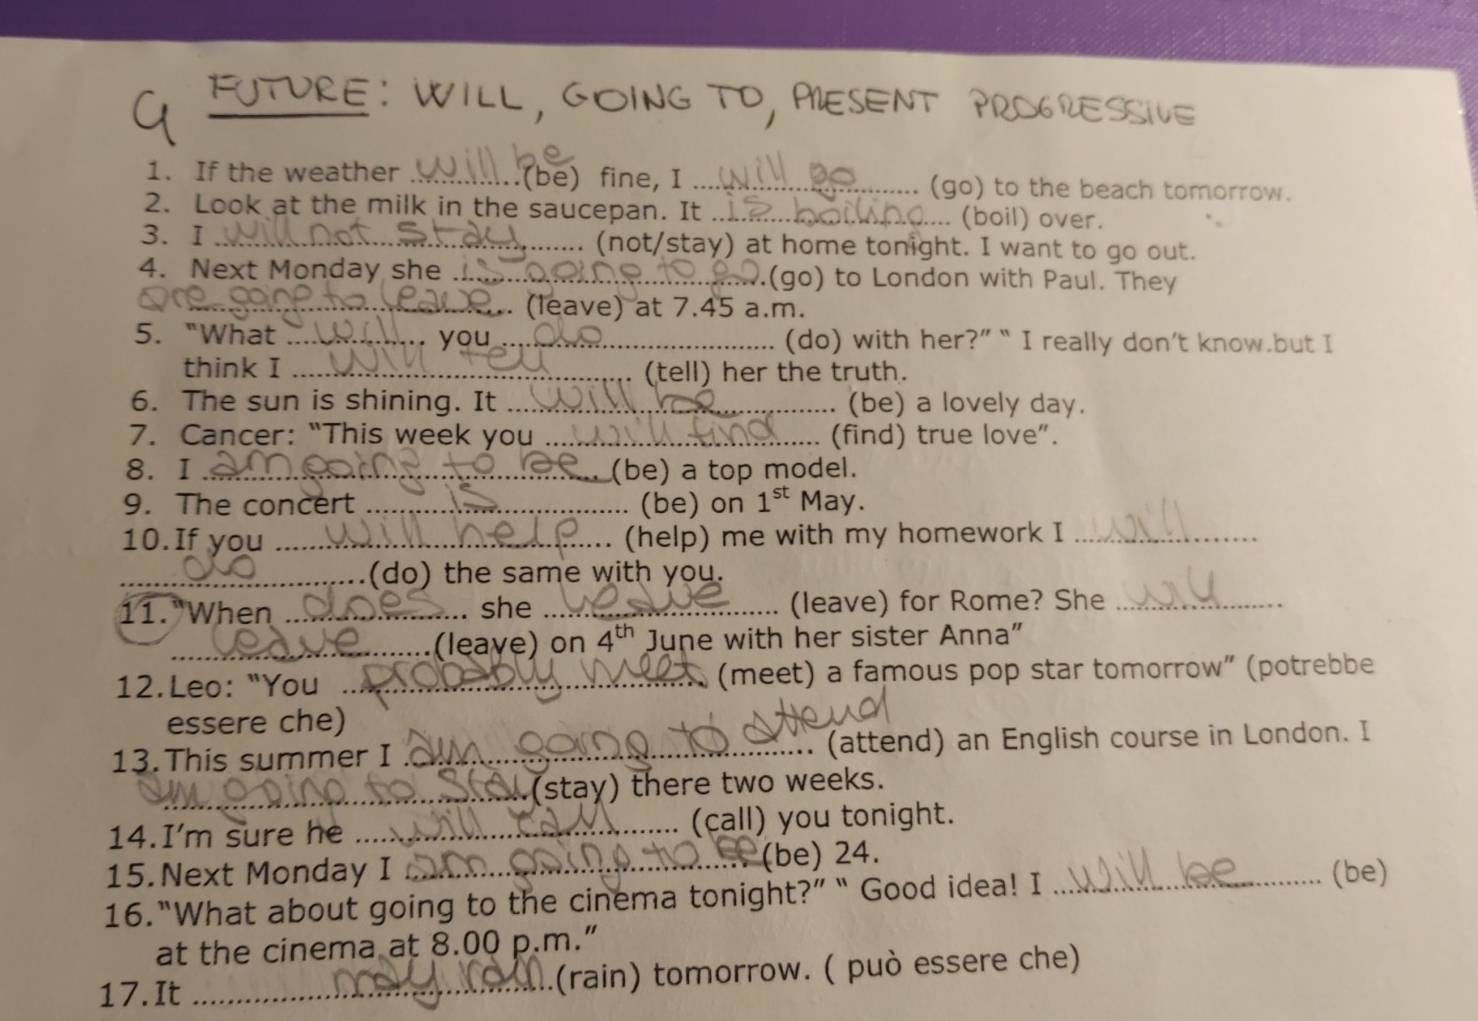 G FUTURE: WILL, GOING TO, PRESENT PROGRESSIVE
1. If the weather will be (be) fine, I will go (go) to the beach tomorrow.
2. Look at the milk in the saucepan. It is boiling (boil) over.
3. I will not stay (not/stay) at home tonight. I want to go out.
4. Next Monday she is going to go (go) to London with Paul. They
are gone to leave (leave) at 7.45 a.m.
5. "What will you do (do) with her?" " I really don't know.but I
think I will tell (tell) her the truth.
6. The sun is shining. It will be (be) a lovely day.
7. Cancer: "This week you will find (find) true love".
8. I am going to be (be) a top model.
9. The concert is (be) on 1st May.
10. If you will help (help) me with my homework I will
do (do) the same with you.
11. "When does she leave (leave) for Rome? She will
leave (leave) on 4th June with her sister Anna"
12. Leo: "You probably meet (meet) a famous pop star tomorrow" (potrebbe
essere che)
13. This summer I am going to attend (attend) an English course in London. I
am going to stay (stay) there two weeks.
14. I'm sure he will call (call) you tonight.
15. Next Monday I am going to be (be) 24.
16. "What about going to the cinema tonight?" " Good idea! I will be (be)
at the cinema at 8.00 p.m."
17. It may rain (rain) tomorrow. ( può essere che)